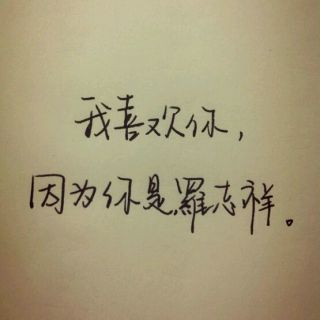 我喜欢你，
因为你是羅志祥。